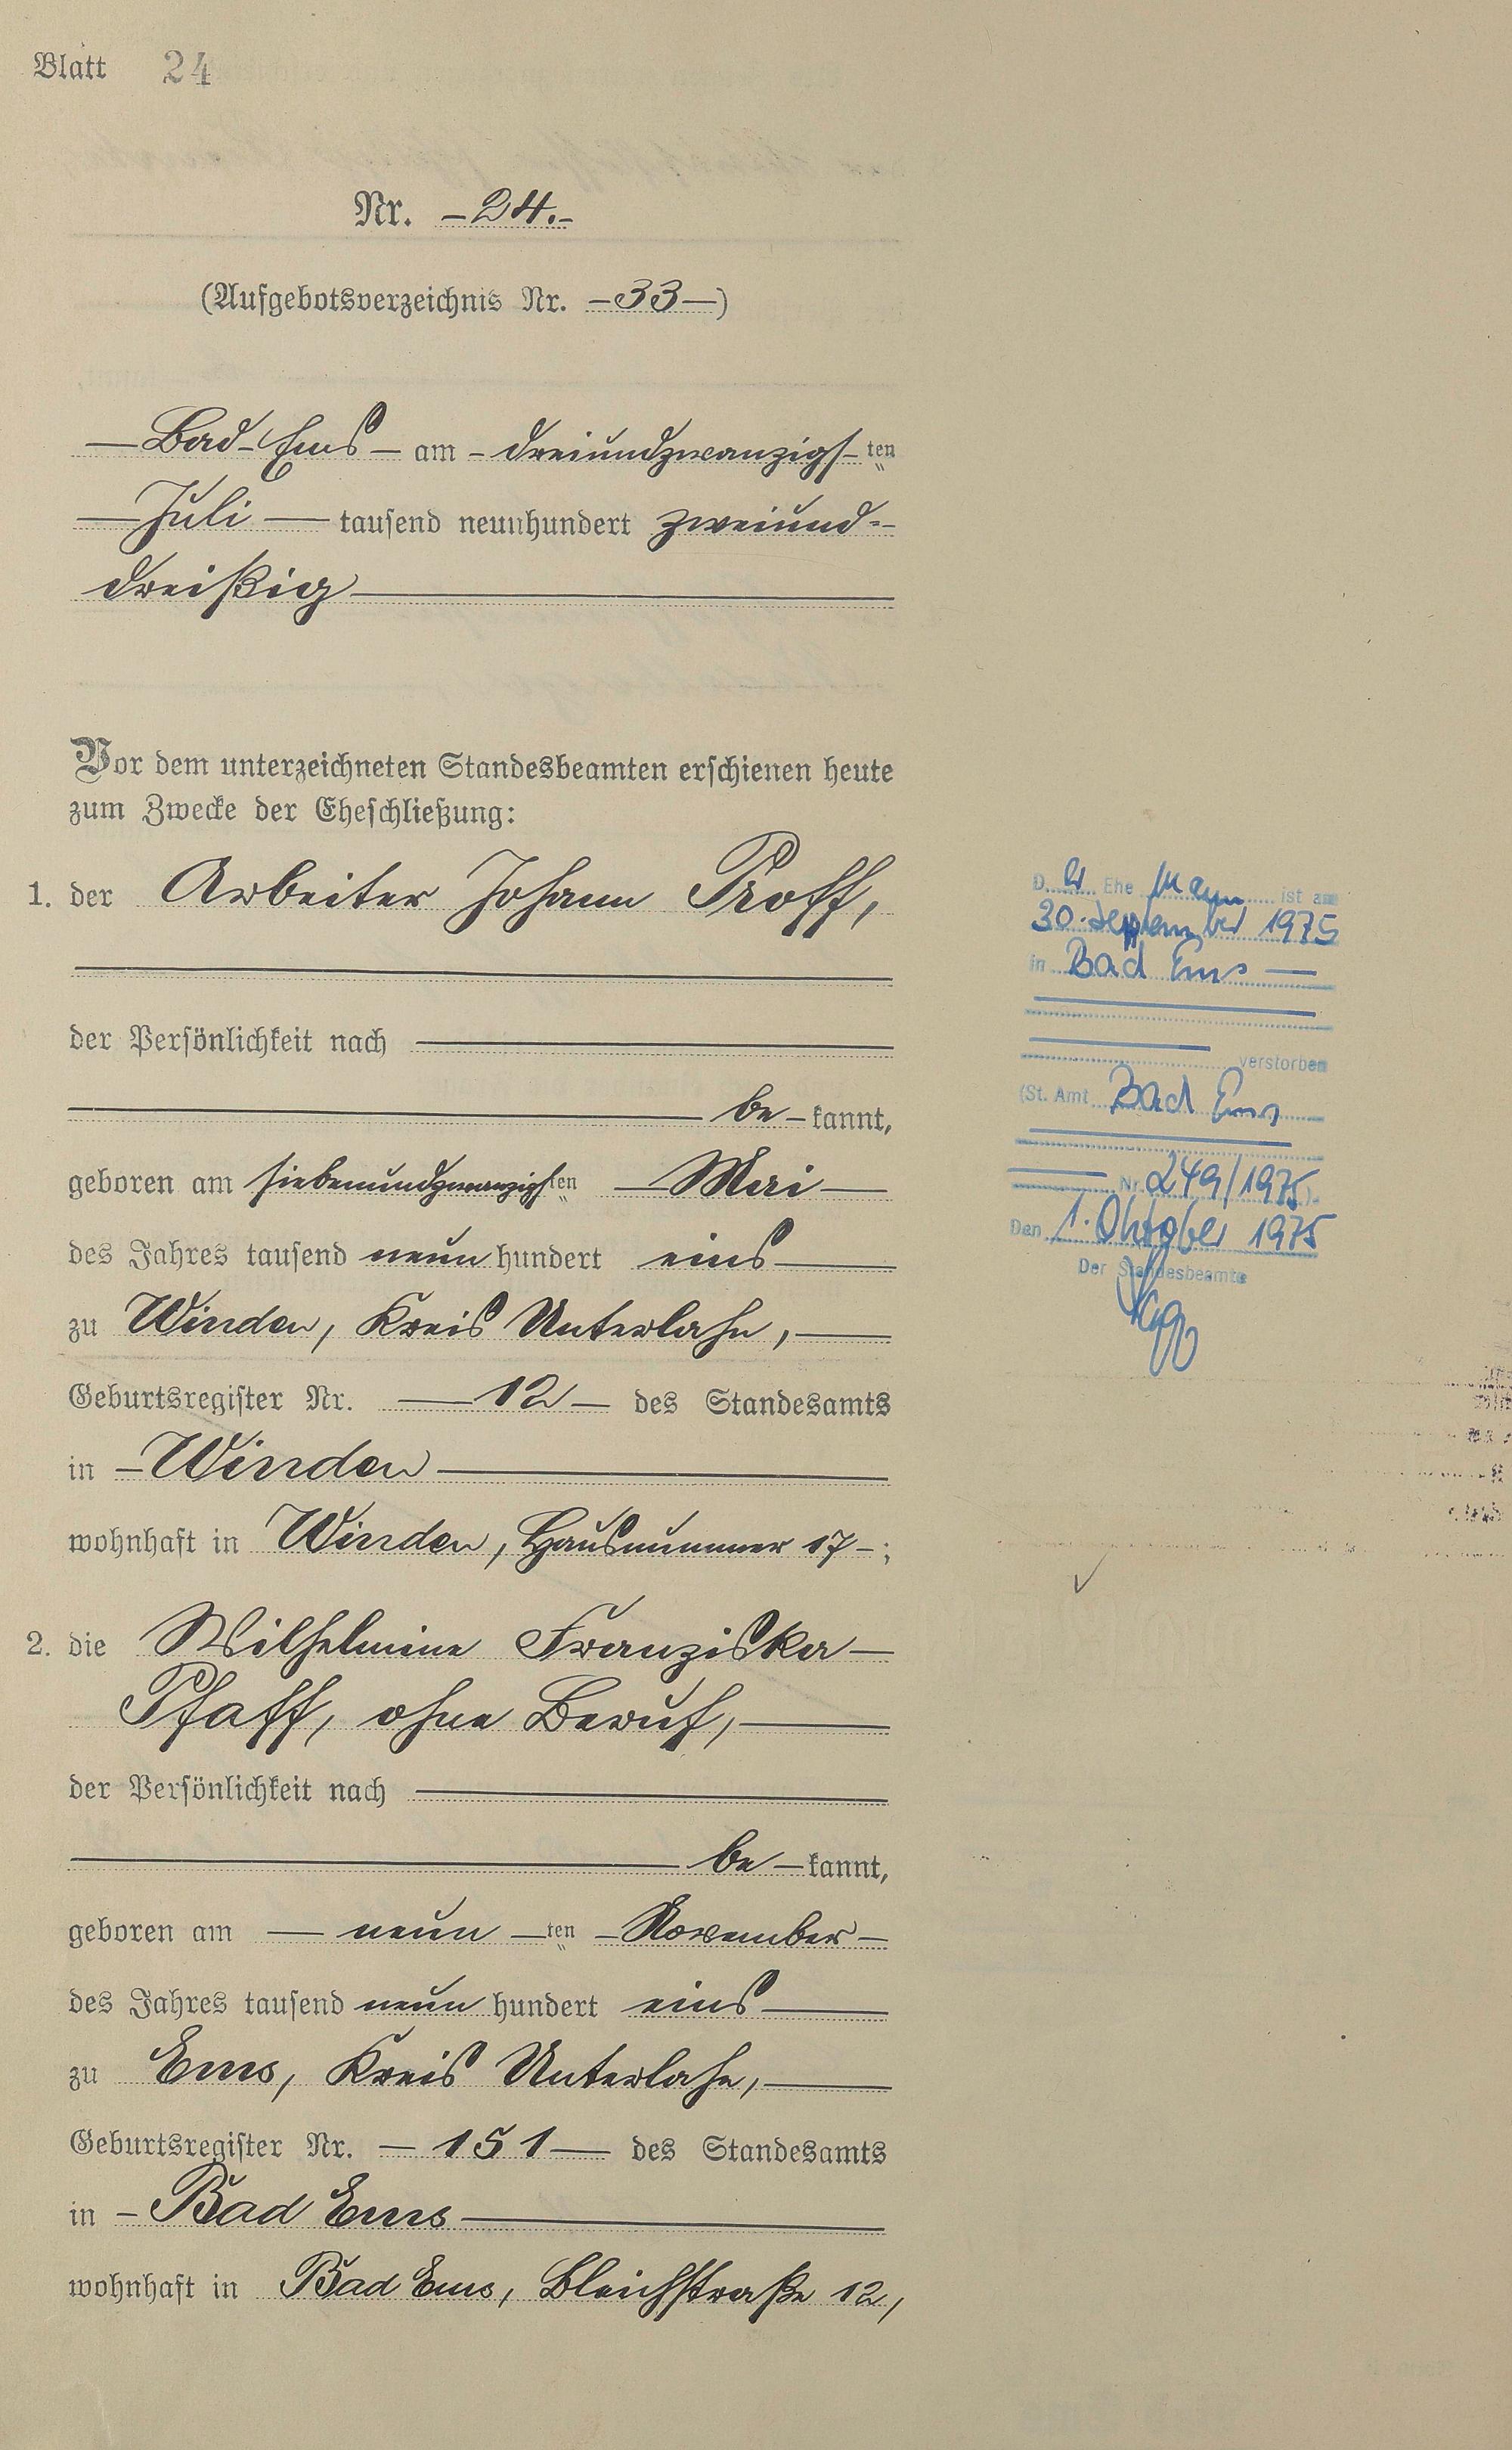 Blatt 24
Nr. – 24. –
(Aufgebotsverzeichnis Nr. – 33 –)
— Bad-Ems — am – dreiundzwanzigs – ten
— Juli — tausend neunhundert zweiund-
dreißig
Vor dem unterzeichneten Standesbeamten erschienen heute
zum Zwecke der Eheschließung:
1. der Arbeiter Johann Proff,
der Persönlichkeit nach
be – kannt,
geboren am siebenundzwanzigsten — Mai —
des Jahres tausend neun hundert eins
zu Winden, Kreis Unterlahn,
Geburtsregister Nr. — 12 — des Standesamts
in – Winden
wohnhaft in Winden, Hausnummer 17 – ;
2. die Wilhelmine Franziska —
Pfaff, ohne Beruf,
der Persönlichkeit nach
be – kannt,
geboren am — neun – ten – November –
des Jahres tausend neun hundert eins
zu Ems, Kreis Unterlahn,
Geburtsregister Nr. — 151 — des Standesamts
in – Bad Ems
wohnhaft in Bad Ems, Bleichstraße 12,
D er Ehe mann ist am
30. September 1975
in Bad Ems —
verstorben
(St. Amt Bad Ems
Nr. 249/1975).
Den 1. Oktober 1975
Der Standesbeamte